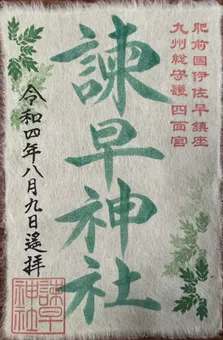 肥前國伊佐早鎮座
九州総守護四面宮
諫早神社
令和四年八月九日遙拝
諫早
神社